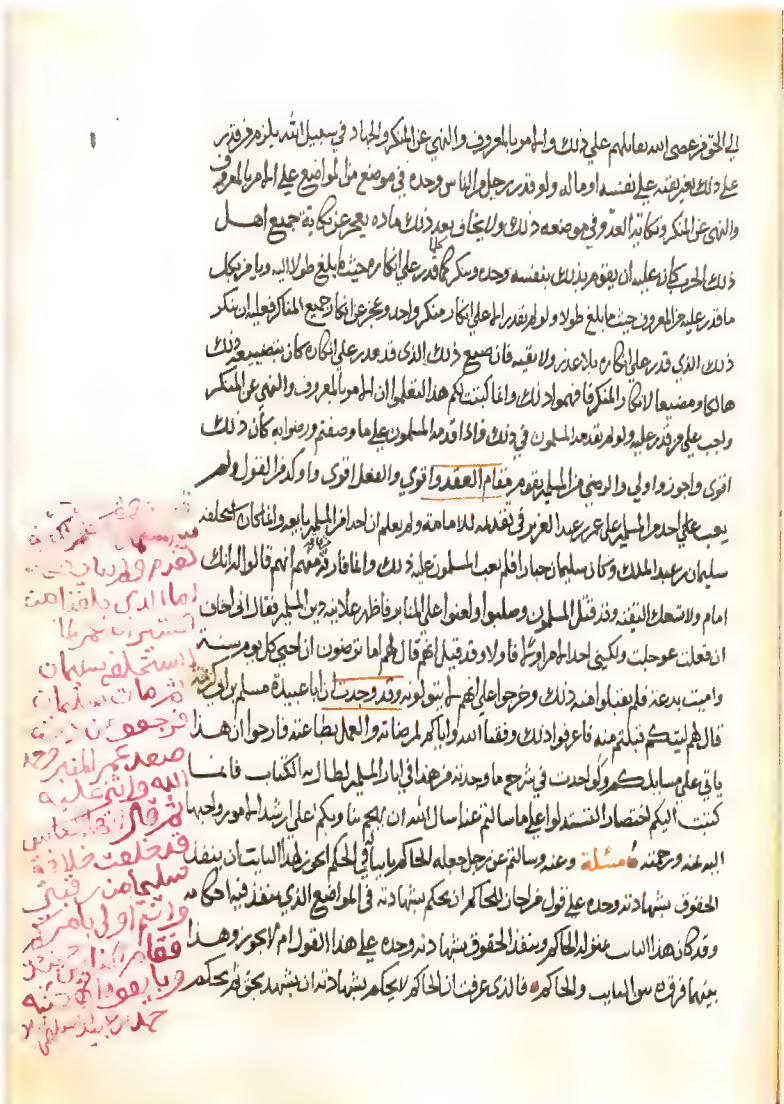 الى الحق فمن عصى الله نقاتلهم على ذلك والامر بالمعروف والنهي عن المنكر والجهاد في سبيل الله يلزم من قدر
على ذلك بغير تقية على نفسه او ماله ولو قدر رجل من الناس وحده في موضع من المواضع على الامر بالمعروف
والنهي عن المنكر ونكاية العدو في موضعه ذلك ولا يخاف بعد ذلك يعجز عن نكاية جميع اهل
ذلك الحرب كان عليه ان يقوم بذلك بنفسه وحده وينكر كلما قدر على انكاره حيث ما بلغ طولا اليه ويامر بكل
ما قدر عليه من المعروف حيث ما بلغ طولا ولو لم يقدر الا على انكار منكر واحد وعجز عن انكار جميع المناكر فعليه ان ينكر
ذلك الذي قدر على انكاره بلا عذر ولا تقية فان ضيع ذلك الذي قد قدر على انكاره كان بتضييعه ذلك
هالكا ومضيعا لانكار المنكر فافهموا ذلك وانما كتبت لكم هذا لتعلموا ان الامر بالمعروف والنهي عن المنكر
واجب على من قدر عليه ولو لم يقدمه المسلمون في ذلك فاذا قدمه المسلمون على ما وصفتم ورضوا به كان ذلك
اقوى واجوز واولى والرضى من المسلمين يقوم مقام العقد واقوى والفعل اقوى واوكد من القول ولم
يعب على احد من المسلمين على عمر بن عبد العزيز في تقدمه للامامة ولم يعلم ان احدا من المسلمين بايعه وانما كان استخلفه
سليمان بن عبد الملك وكان سليمان جبارا فلم يعب المسلمون عليه ذلك وانما فارقه من فارقه منهم انهم قالوا له انك
امام ولا تسعك التقية وقد قتل المسلمون وصلبوا ولعنوا على المنابر فاظهر علانية دين المسلمين فقال اني اخاف
ان فعلت عوجلت ولكني احد الامر اولا فاولا وقد قيل انه قال لهم اما ترضون ان احيي كل يوم سنة
واميت بدعة فلم يقبلوا منه ذلك وخرجوا على انهم لا يتولونه وقد وجدت ان ابا عبيدة مسلم بن ابي كريمة
قال لهم ليتكم قبلتم منه فاعرفوا ذلك وفقنا الله واياكم لمرضاته والعمل بطاعته فارجوا ان هذا
ياتي على مسايلكم ولو اخذت في شرح ما وجدته من هذا في اثار المسلمين لطال به الكتاب فانما
كتبت اليكم اختصار لتستدلوا على ما سالتم عنه اسال الله ان يهجم بنا وبكم على ارشد الامور واحبها
اليه بمنه ورحمته مسئلة وعنه وسالتم عن رجل جعله الحاكم نايبا في الحكم ايجوز لهذا النايب ان ينفذ
الحقوق بشهادته وحده على قول من اجاز للحاكم ان يحكم بشهادته في المواضع الذي ينفذ فيه احكامه
وقد كان هذا النايب يتولاه الحاكم وينفذ الحقوق بشهادته وحده على هذا القول ام لا يجوز وهذا
بينهما فرق بين النايب والحاكم فالذي عرفت ان الحاكم لا يحكم بشهادته ان يشهد بحق ثم يحكم
تقدم ولم
اما الذي بلغنا من
استخلفه سليمان
ثم مات سليمان
فرجعوا
صعد عمر المنبر وحمد
الله واثنى عليه
ثم قال ايها الناس
قد خلعت خلافة
سليمان من رقبتي
وانتم اولى بامركم
فقام
وبايعوا